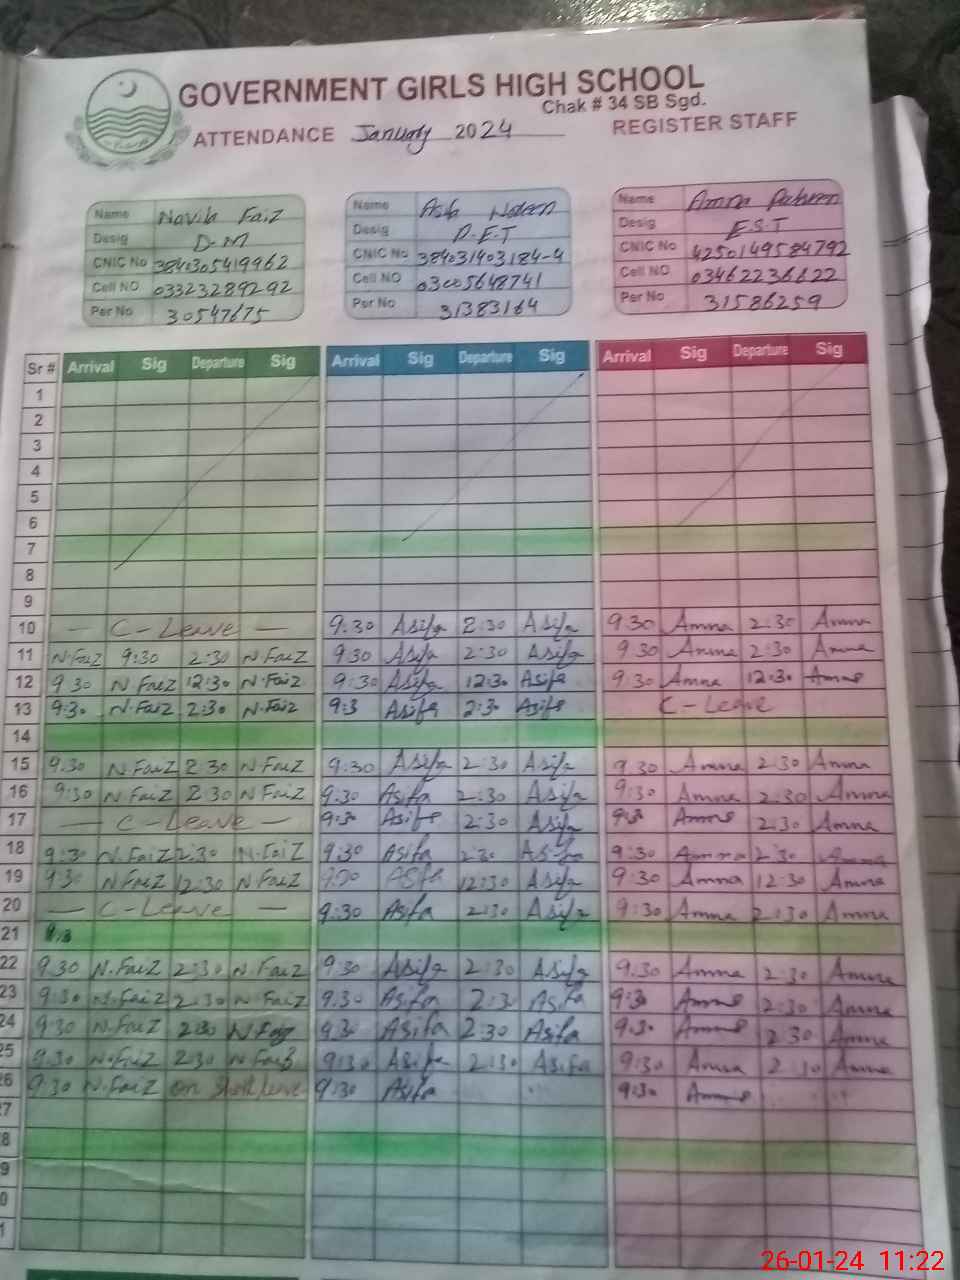 GOVERNMENT GIRLS HIGH SCHOOL
Chak # 34 SB Sgd.
ATTENDANCE January 2024 REGISTER STAFF
Name Faiz Name Name Amna
Desig D-M Desig D.E.T Desig E.S.T
CNIC No 3840305419962 CNIC No 384031403184-4 CNIC No 4250149584792
Cell NO 03323289292 Cell NO 03005648741 Cell NO 03462236622
Per No 30547675 Per No 31383164 Per No 31586259
Sr # Arrival Sig Departure Sig Arrival Sig Departure Sig Arrival Sig Departure Sig
1
2
3
4
5
6
7
8
9
10 — C-Leave — 9:30 Asifa 2:30 Asifa 9:30 Amna 2:30 Amna
11 N.Faiz 9:30 2:30 N.Faiz 9:30 Asifa 2:30 Asifa 9:30 Amna 2:30 Amna
12 9:30 N.Faiz 12:30 N.Faiz 9:30 Asifa 12:30 Asifa 9:30 Amna 12:30 Amna
13 9:30 N.Faiz 2:30 N.Faiz 9:3 Asifa 2:30 Asifa C-Leave
14
15 9.30 N.Faiz 2:30 N.Faiz 9:30 Asifa 2:30 Asifa 9.30 Amna 2:30 Amna
16 9:30 N.Faiz 2:30 N.Faiz 9:30 Asifa 2:30 Asifa 9:30 Amna 2:30 Amna
17 — C-Leave — 9:30 Asifa 2:30 Asifa 9:30 Amna 2:30 Amna
18 9:30 N.Faiz 2:30 N.Faiz 9:30 Asifa 2:30 Asifa 9:30 Amna 2:30 Amna
19 9:30 N.Faiz 12:30 N.Faiz 9:30 Asifa 12:30 Asifa 9:30 Amna 12:30 Amna
20 — C-Leave — 9:30 Asifa 2:30 Asifa 9:30 Amna 2:30 Amna
21
22 9.30 N.Faiz 2:30 N.Faiz 9:30 Asifa 2:30 Asifa 9.30 Amna 2:30 Amna
23 9:30 N.Faiz 2:30 N.Faiz 9.30 Asifa 2:3 Asifa 9:30 Amna 2:30 Amna
24 9:30 N.Faiz 2:30 N.Faiz 9:30 Asifa 2:30 Asifa 9:30 Amna 2:30 Amna
25 9:30 N.Faiz 2:30 N.Faiz 9:30 Asifa 2:30 Asifa 9:30 Amna 2:30 Amna
26 9:30 N.Faiz on short leave 9:30 Asifa 9:30 Amna
7
8
9
0
1
26-01-24 11:22